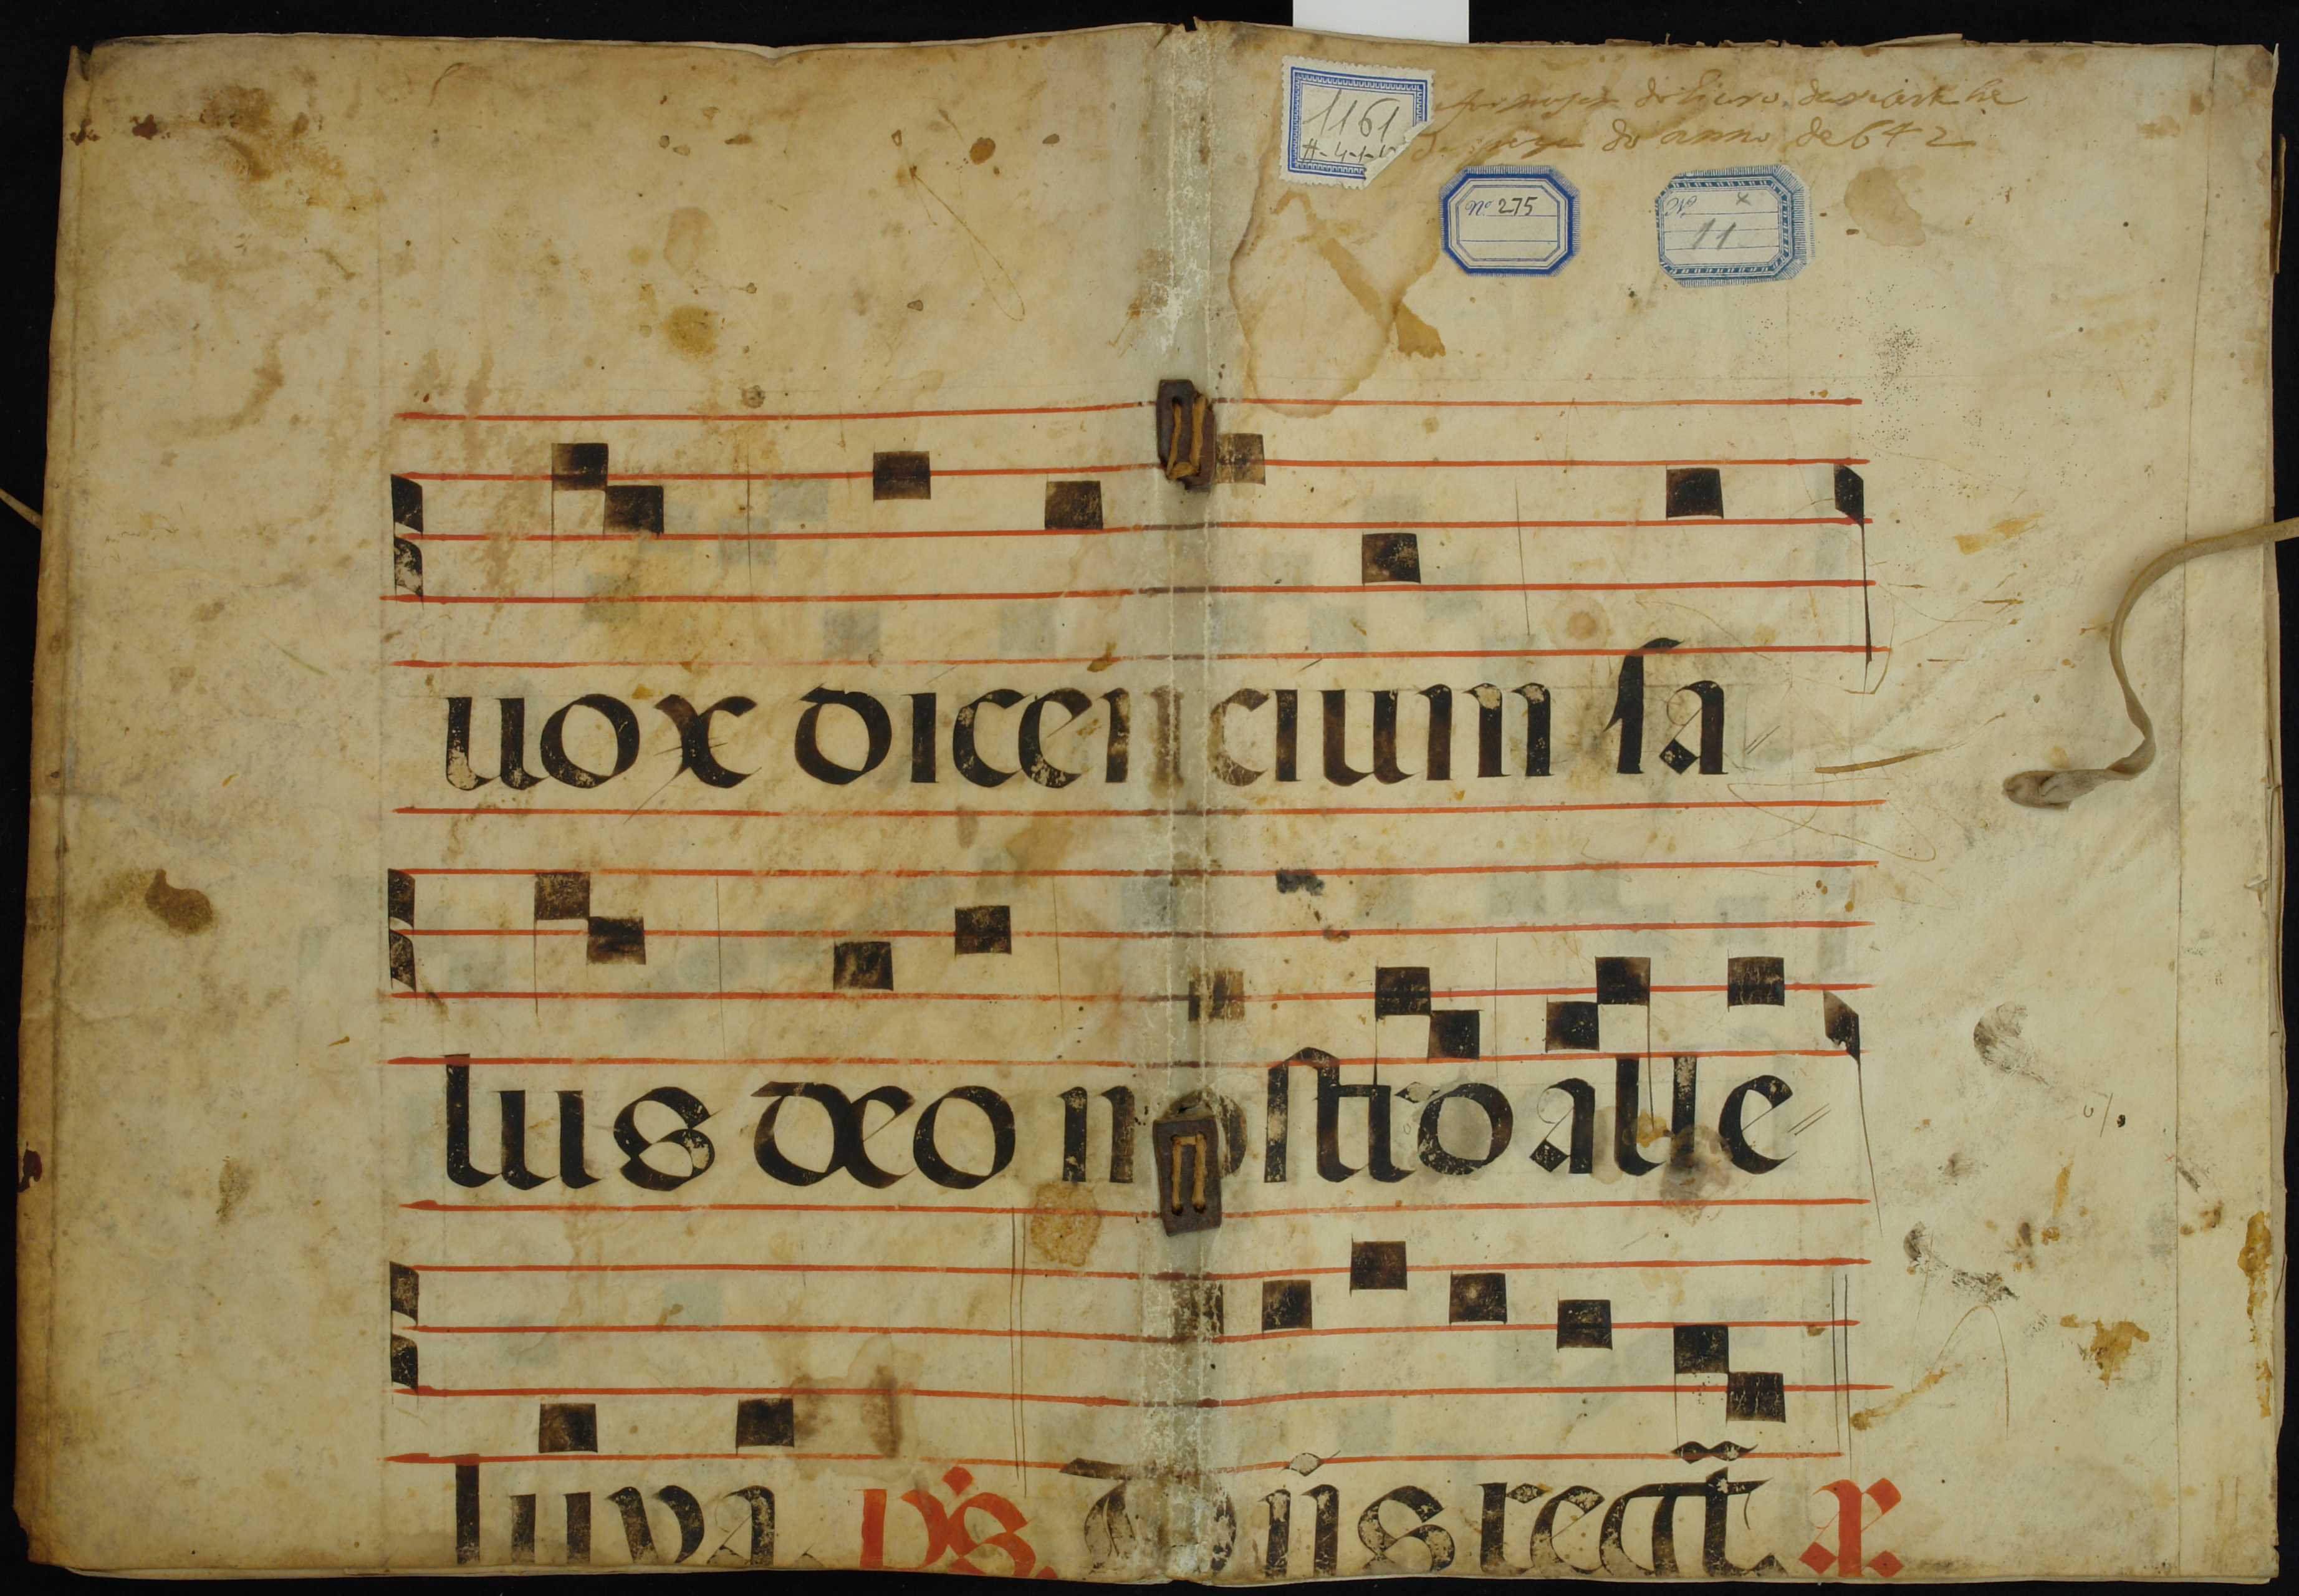 1161
A-4-1-
do Livro
do anno de 642
Nº 275
Nº
11
uox dicencium sa
lus deo nostro alle
luya. vs. Dñs regñt. ps.